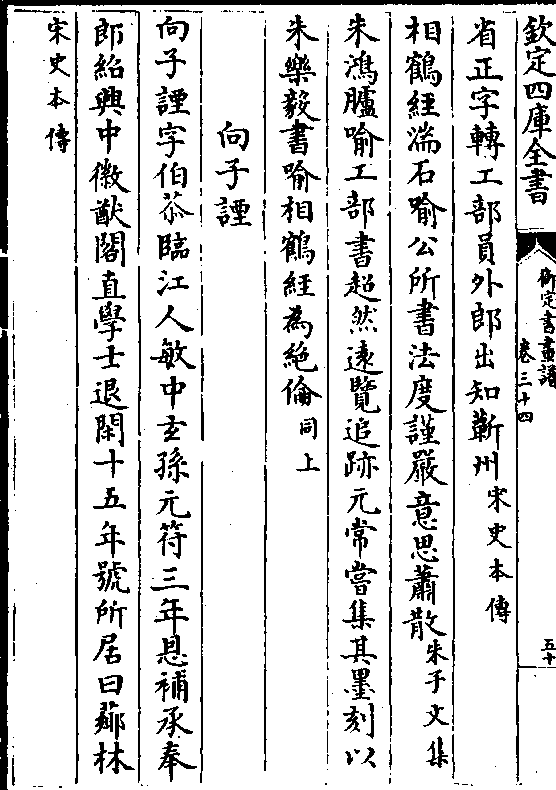 欽定四庫全書
御定書畫譜
卷三十四
五十
省正字轉工部員外郎出知蘄州宋史本傳
相鶴經湍石喻公所書法度謹嚴意思蕭散朱子文集
朱鴻臚喻工部書超然遠覽追跡元常嘗集其墨刻以
朱樂毅書喻相鶴經為絶倫同上
向子諲
向子諲字伯恭臨江人敏中玄孫元符三年恩補承奉
郎紹興中徽猷閣直學士退閑十五年號所居曰薌林
宋史本傳